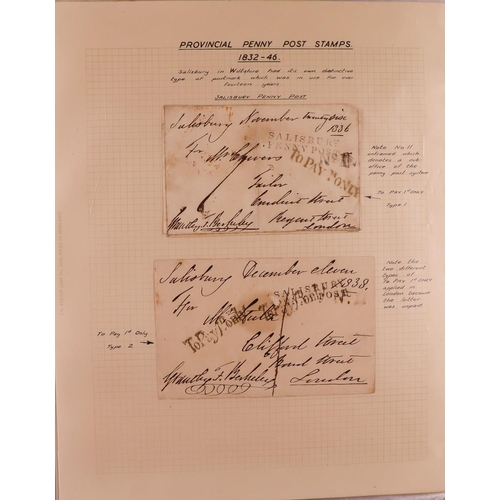 PROVINCIAL PENNY POST STAMPS.
1832-46.
Salisbury in Wiltshire had its own distinctive
type of postmark which was in use for over
fourteen years
SALISBURY PENNY POST
Salisbury November twenty six
1836
SALISBURY
PENNY POST
For
No 11.
To PAY 1d ONLY
Tailor
Conduit Street
Regent Street
London
Grantley F. Berkeley
Note No 11
unframed which
denotes a sub
office of the
penny post system
To Pay 1d Only
Type 1
Salisbury December eleven
1838.
SALISBURY
PENNY POST
For
To Pay 1d only
Clifford Street
Bond Street
London
Grantley F. Berkeley
To Pay 1d Only
Type 2
Note the
two different
types of
To Pay 1d ONLY
applied in
London because
the letter
was unpaid